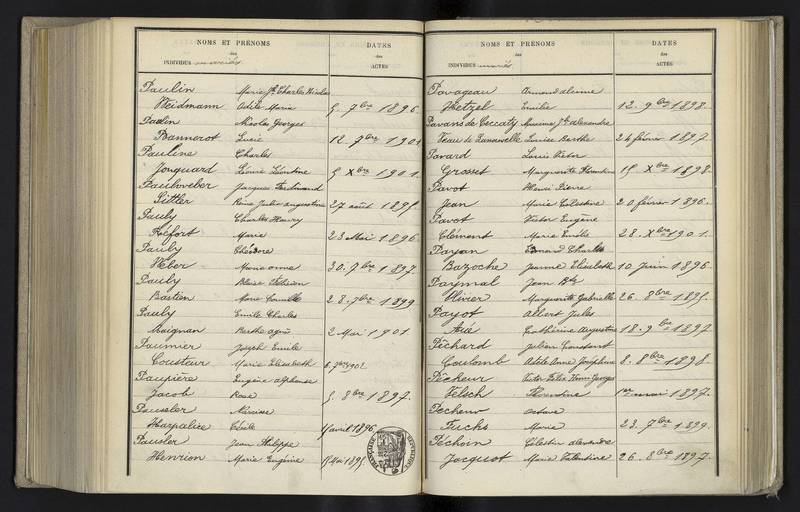 NOMS ET PRÉNOMS
des
INDIVIDUS mariés
DATES
des
ACTES
Paulin Marie Jh Charles Nicolas
Weidmann Odile Marie 5. 7bre 1896
Paulin Nicolas Georges
Bannerot Lucie 12. 7bre 1901
Pauline Charles
Jonquard Léonie Léontine 5 Xbre 1901.
Paulweber Jacques Ferdinand
Sittler Reine Julie augustine 27 août 1895.
Pauly Charles Henry
Helfort Marie 23 Mai 1896
Pauly Théodore
Weber Marie anne 30. 7bre 1897.
Pauly Blaise
Bastien Marie Camille 28. 7bre 1899
Pauly Emile Charles
Maignan Berthe 2 Mai 1901
Paumier Joseph Emile
Cousteur Marie Elisabeth 6. 7bre 1901
Paupière Eugène alphonse
Jacob Rose 5. 8bre 1897.
Pausler Narcisse
Harpalice Cécile avril 1896
Pausler Jean Philippe
Henrion Marie Eugénie Mai 1895
NOMS ET PRÉNOMS
des
INDIVIDUS mariés
DATES
des
ACTES
Pavageau
Hetzel Emilie 12. 9bre 1898.
Pavans de Ceccaty Maxime Jh alexandre
Louise Berthe 24 février 1897.
Pavard Louis Victor
Grosset Marguerite Florentine 15. Xbre 1898.
Pavot Henri Pierre
Jean Marie Célestine 20 février 1896.
Pavot Victor Eugène
Clément Marie Emélie 28. Xbre 1901.
Payan Edmond Charles
Bazoche Jeanne Elisabeth 10 Juin 1896.
Paymal Jean Bte
Olivier Marguerite Gabrielle 26. 8bre 1895.
Payot Albert Jules
Catherine Augustine 18. 9bre 1897
Péchard Julien Constant
Coulomb Adèle Anne Joséphine 8. 8bre 1898.
Pêcheur Victor Félix Henri Georges
Felsch Florentine 1er mai 1897.
Pécheur Octave
Fuchs Marie 23. 7bre 1899.
Péchoin Célestin alexandre
Jacquot Marie Valentine 26. 8bre 1897.